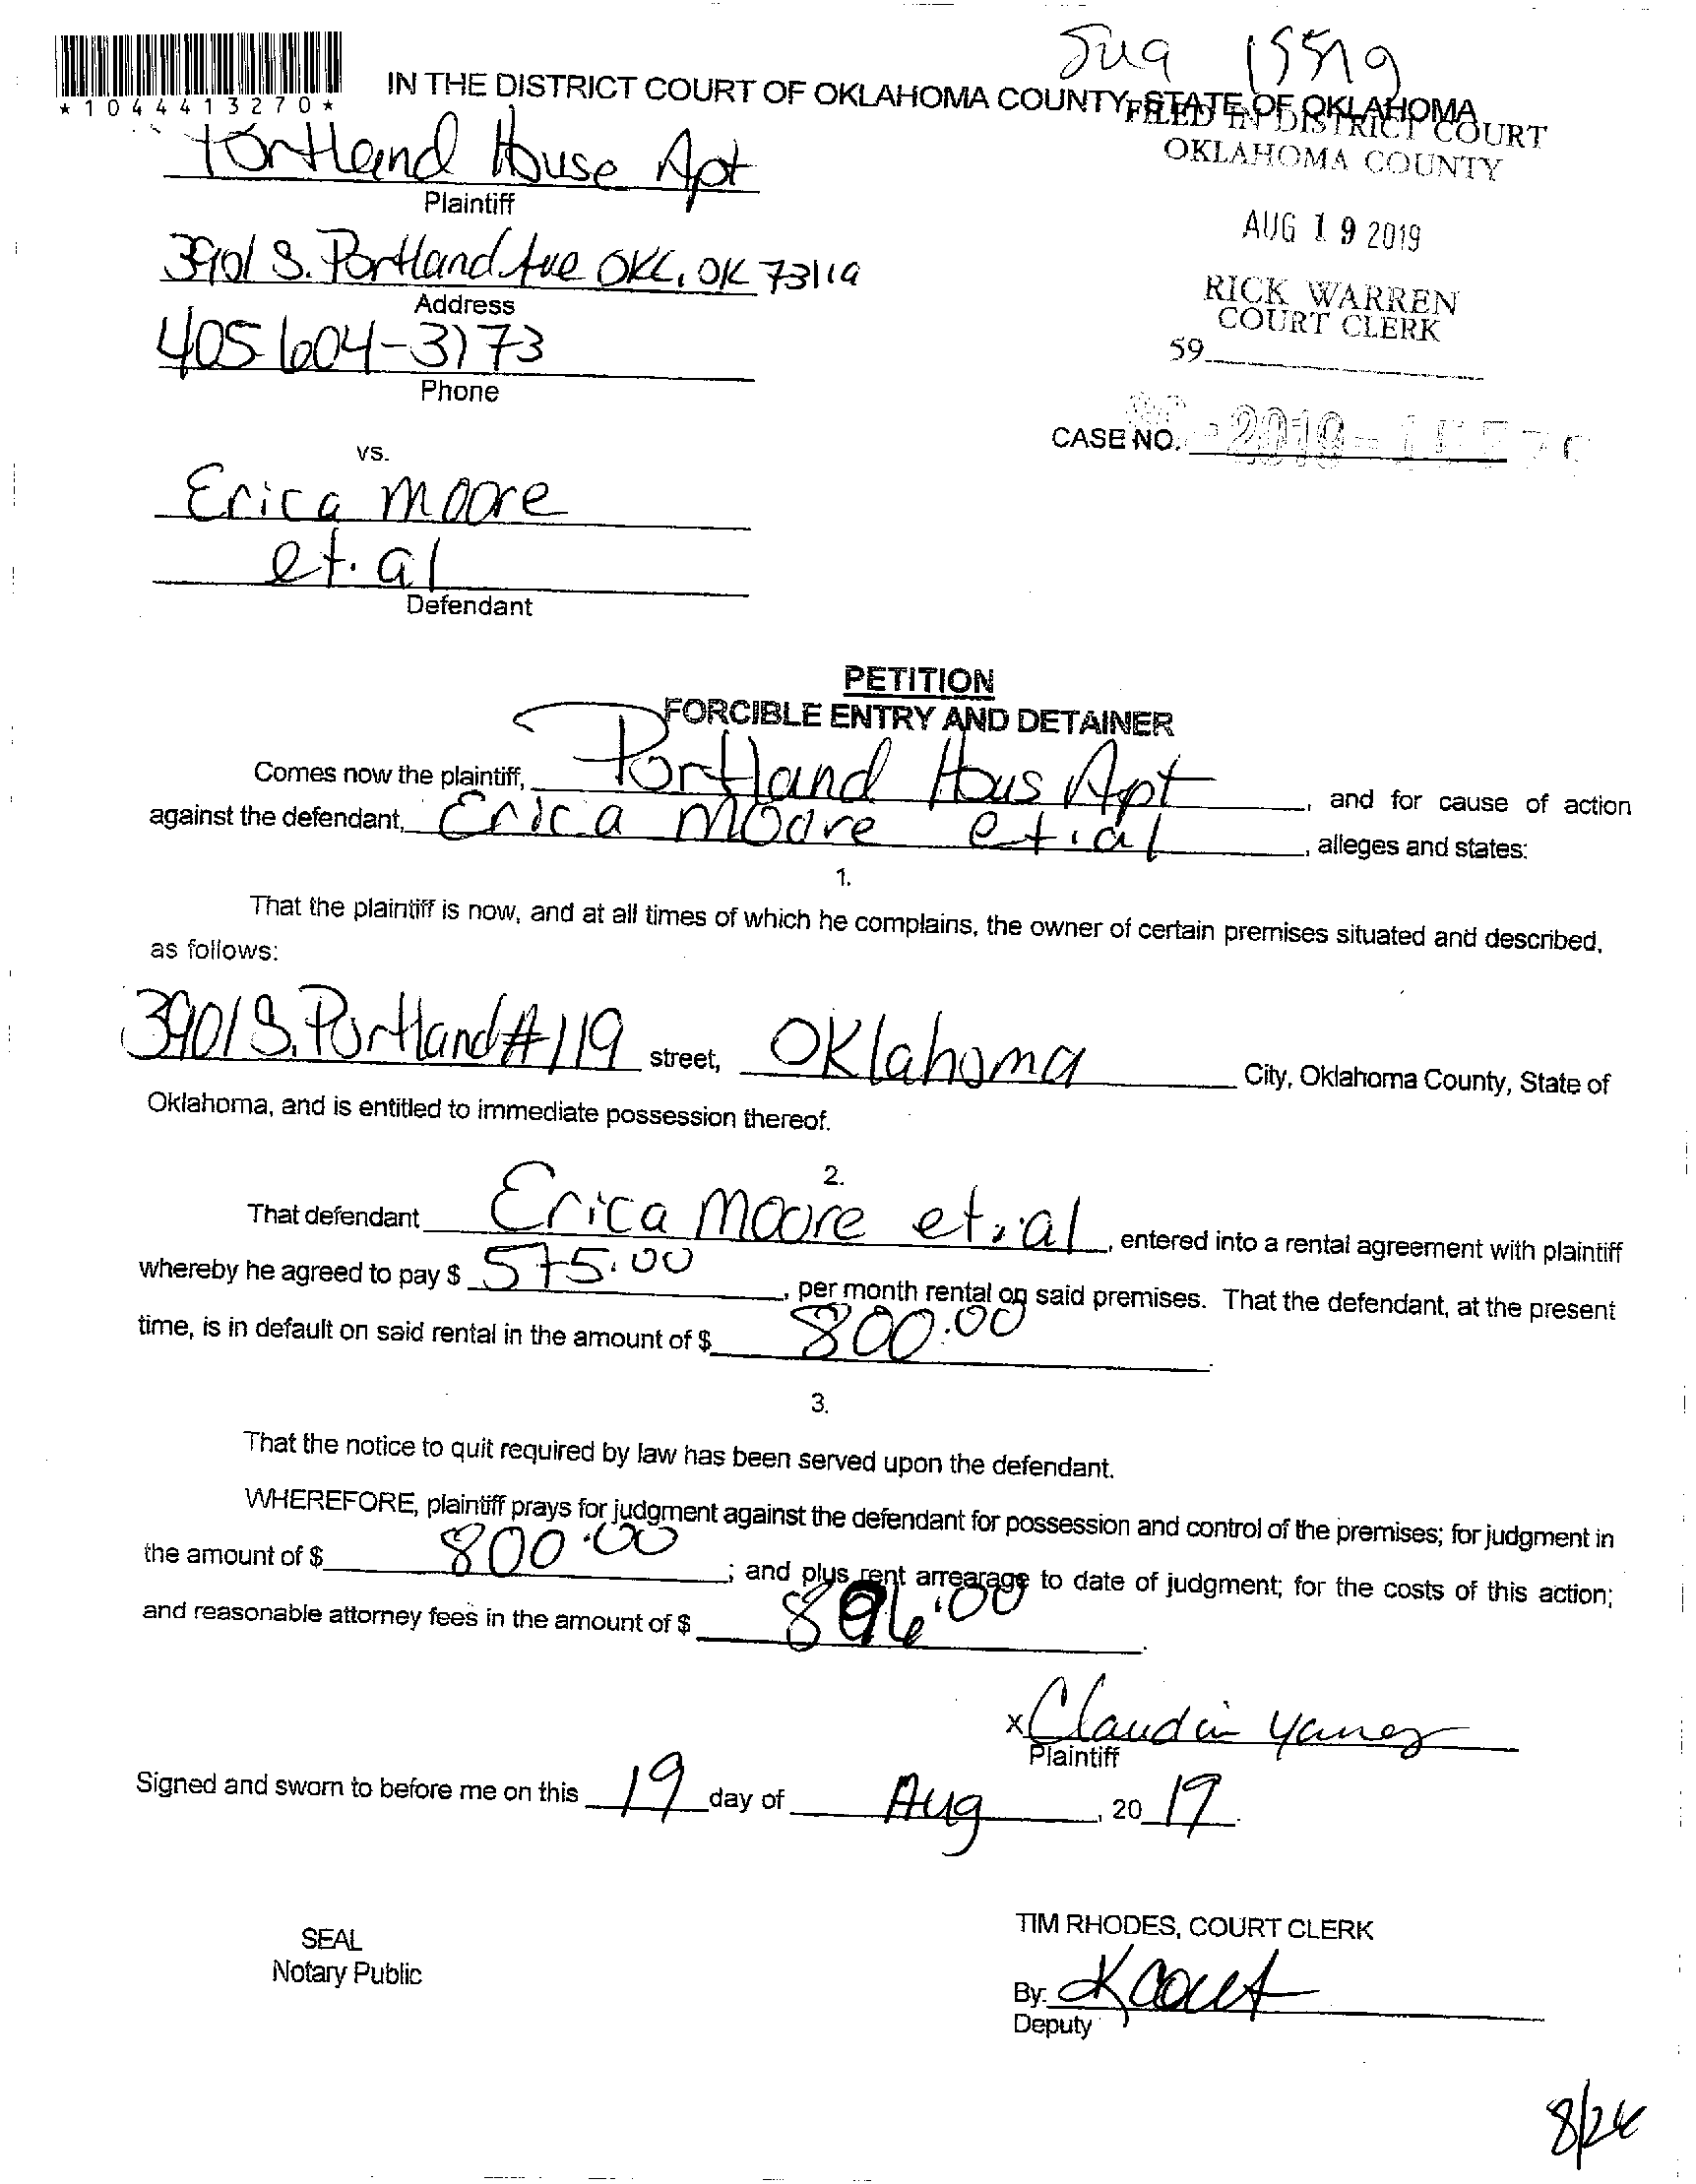 *1044413270*
IN THE DISTRICT COURT OF OKLAHOMA COUNTY, STATE OF OKLAHOMA
FILED IN DISTRICT COURT
OKLAHOMA COUNTY
Portland House Apt
Plaintiff
AUG 19 2019
3901 S. Portland Ave OKC, OK 73119
Address
RICK WARREN
COURT CLERK
405 604-3173
59
Phone
CASE NO. -2019-
vs.
Erica Moore
et. al
Defendant
PETITION
FORCIBLE ENTRY AND DETAINER
Comes now the plaintiff, Portland Hous Apt, and for cause of action
against the defendant, Erica Moore et. al, alleges and states:
1.
That the plaintiff is now, and at all times of which he complains, the owner of certain premises situated and described,
as follows:
3901 S. Portland #119 street, Oklahoma City, Oklahoma County, State of
Oklahoma, and is entitled to immediate possession thereof.
2.
That defendant Erica Moore et. al, entered into a rental agreement with plaintiff
whereby he agreed to pay $ 575.00, per month rental on said premises. That the defendant, at the present
time, is in default on said rental in the amount of $ 800.00.
3.
That the notice to quit required by law has been served upon the defendant.
WHEREFORE, plaintiff prays for judgment against the defendant for possession and control of the premises; for judgment in
the amount of $ 800.00; and plus rent arrearage to date of judgment; for the costs of this action;
and reasonable attorney fees in the amount of $ 896.00.
x Claudia Yanez
Plaintiff
Signed and sworn to before me on this 19 day of Aug, 2019.
SEAL
Notary Public
TIM RHODES, COURT CLERK
By:
Deputy